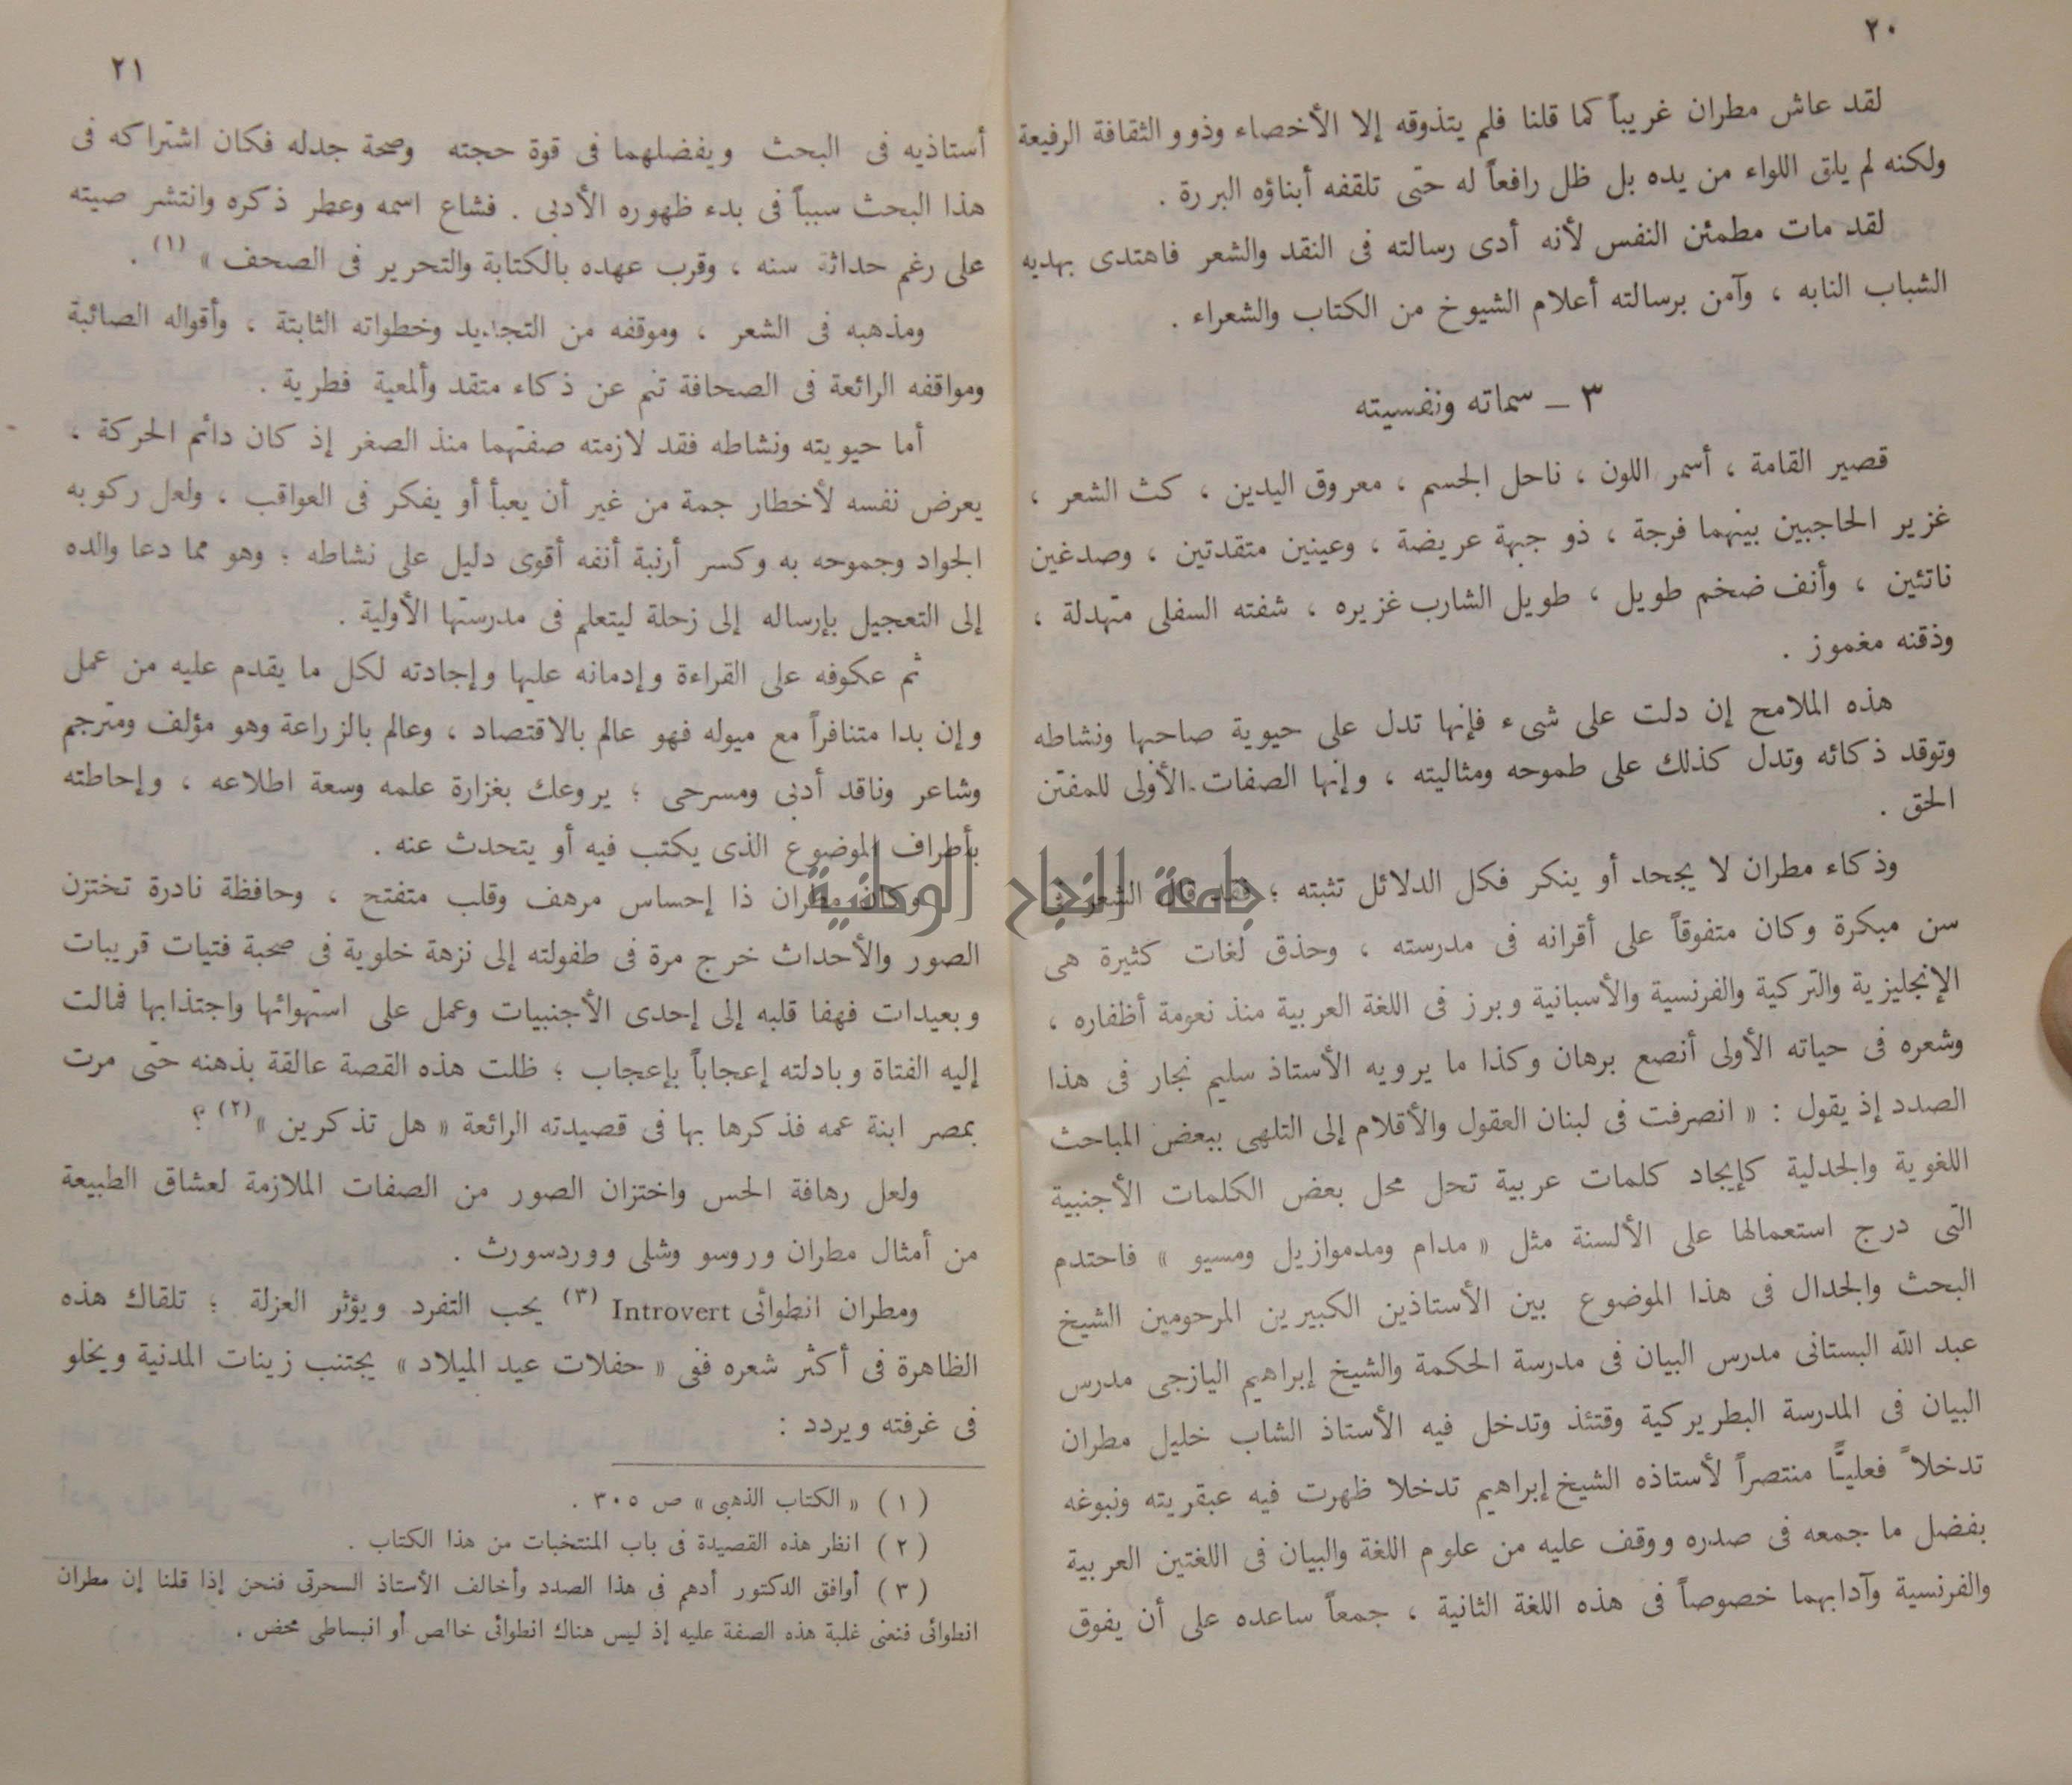 ٢٠
لقد عاش مطران غريباً كما قلنا فلم يتذوقه إلا الأخصاء وذوو الثقافة الرفيعة
ولكنه لم يلق اللواء من يده بل ظل رافعاً له حتى تلقفه أبناؤه البررة .
لقد مات مطمئن النفس لأنه أدى رسالته فى النقد والشعر فاهتدى بهديه
الشباب النابه ، وآمن برسالته أعلام الشيوخ من الكتاب والشعراء .
٣ – سماته ونفسيته
قصير القامة ، أسمر اللون ، ناحل الجسم ، معروق اليدين ، كث الشعر ،
غزير الحاجبين بينهما فرجة ، ذو جبهة عريضة ، وعينين متقدتين ، وصدغين
ناتئين ، وأنف ضخم طويل ، طويل الشارب غزيره ، شفته السفلى متهدلة ،
وذقنه مغموز .
هذه الملامح إن دلت على شىء فإنها تدل على حيوية صاحبها ونشاطه
وتوقد ذكائه وتدل كذلك على طموحه ومثاليته ، وإنها الصفات الأولى للمفتن
الحق .
وذكاء مطران لا يجحد أو ينكر فكل الدلائل تثبته ؛ فقد قال الشعر فى
سن مبكرة وكان متفوقاً على أقرانه فى مدرسته ، وحذق لغات كثيرة هى
الإنجليزية والتركية والفرنسية والأسبانية وبرز فى اللغة العربية منذ نعومة أظفاره ،
وشعره فى حياته الأولى أنصع برهان وكذا ما يرويه الأستاذ سليم نجار فى هذا
الصدد إذ يقول : « انصرفت فى لبنان العقول والأقلام إلى التلهى ببعض المباحث
اللغوية والجدلية كإيجاد كلمات عربية تحل محل بعض الكلمات الأجنبية
التى درج استعمالها على الألسنة مثل « مدام ومدموازيل ومسيو » فاحتدم
البحث والجدال فى هذا الموضوع بين الأستاذين الكبيرين المرحومين الشيخ
عبد الله البستانى مدرس البيان فى مدرسة الحكمة والشيخ إبراهيم اليازجى مدرس
البيان فى المدرسة البطريركية وقتئذ وتدخل فيه الأستاذ الشاب خليل مطران
تدخلاً فعليًّا منتصراً لأستاذه الشيخ إبراهيم تدخلا ظهرت فيه عبقريته ونبوغه
بفضل ما جمعه فى صدره ووقف عليه من علوم اللغة والبيان فى اللغتين العربية
والفرنسية وآدابهما خصوصاً فى هذه اللغة الثانية ، جمعاً ساعده على أن يفوق
٢١
أستاذيه فى البحث ويفضلهما فى قوة حجته وصحة جدله فكان اشتراكه فى
هذا البحث سبباً فى بدء ظهوره الأدبى . فشاع اسمه وعطر ذكره وانتشر صيته
على رغم حداثة سنه ، وقرب عهده بالكتابة والتحرير فى الصحف » (١) .
ومذهبه فى الشعر ، وموقفه من التجديد وخطواته الثابتة ، وأقواله الصائبة
ومواقفه الرائعة فى الصحافة تنم عن ذكاء متقد وألمعية فطرية .
أما حيويته ونشاطه فقد لازمته صفتهما منذ الصغر إذ كان دائم الحركة ،
يعرض نفسه لأخطار جمة من غير أن يعبأ أو يفكر فى العواقب ، ولعل ركوبه
الجواد وجموحه به وكسر أرنبة أنفه أقوى دليل على نشاطه ؛ وهو مما دعا والده
إلى التعجيل بإرساله إلى زحلة ليتعلم فى مدرستها الأولية .
ثم عكوفه على القراءة وإدمانه عليها وإجادته لكل ما يقدم عليه من عمل
وإن بدا متنافراً مع ميوله فهو عالم بالاقتصاد ، وعالم بالزراعة وهو مؤلف ومترجم
وشاعر وناقد أدبى ومسرحى ؛ يروعك بغزارة علمه وسعة اطلاعه ، وإحاطته
بأطراف الموضوع الذى يكتب فيه أو يتحدث عنه .
جامعة النجاح الوطنية
وكان مطران ذا إحساس مرهف وقلب متفتح ، وحافظة نادرة تختزن
الصور والأحداث خرج مرة فى طفولته إلى نزهة خلوية فى صحبة فتيات قريبات
وبعيدات فهفا قلبه إلى إحدى الأجنبيات وعمل على استهوائها واجتذابها فمالت
إليه الفتاة وبادلته إعجاباً بإعجاب ؛ ظلت هذه القصة عالقة بذهنه حتى مرت
بمصر ابنة عمه فذكرها بها فى قصيدته الرائعة « هل تذكرين » (٢) ؟
ولعل رهافة الحس واختزان الصور من الصفات الملازمة لعشاق الطبيعة
من أمثال مطران وروسو وشلى ووردسورث .
ومطران انطوائى Introvert (٣) يحب التفرد ويؤثر العزلة ؛ تلقاك هذه
الظاهرة فى أكثر شعره ففى « حفلات عيد الميلاد » يجتنب زينات المدنية ويخلو
فى غرفته ويردد :
( ١ ) « الكتاب الذهبى » ص ٣٠٥ .
( ٢ ) انظر هذه القصيدة فى باب المنتخبات من هذا الكتاب .
( ٣ ) أوافق الدكتور أدهم فى هذا الصدد وأخالف الأستاذ السحرتى فنحن إذا قلنا إن مطران
انطوائى فنعنى غلبة هذه الصفة عليه إذ ليس هناك انطوائى خالص أو انبساطى محض .